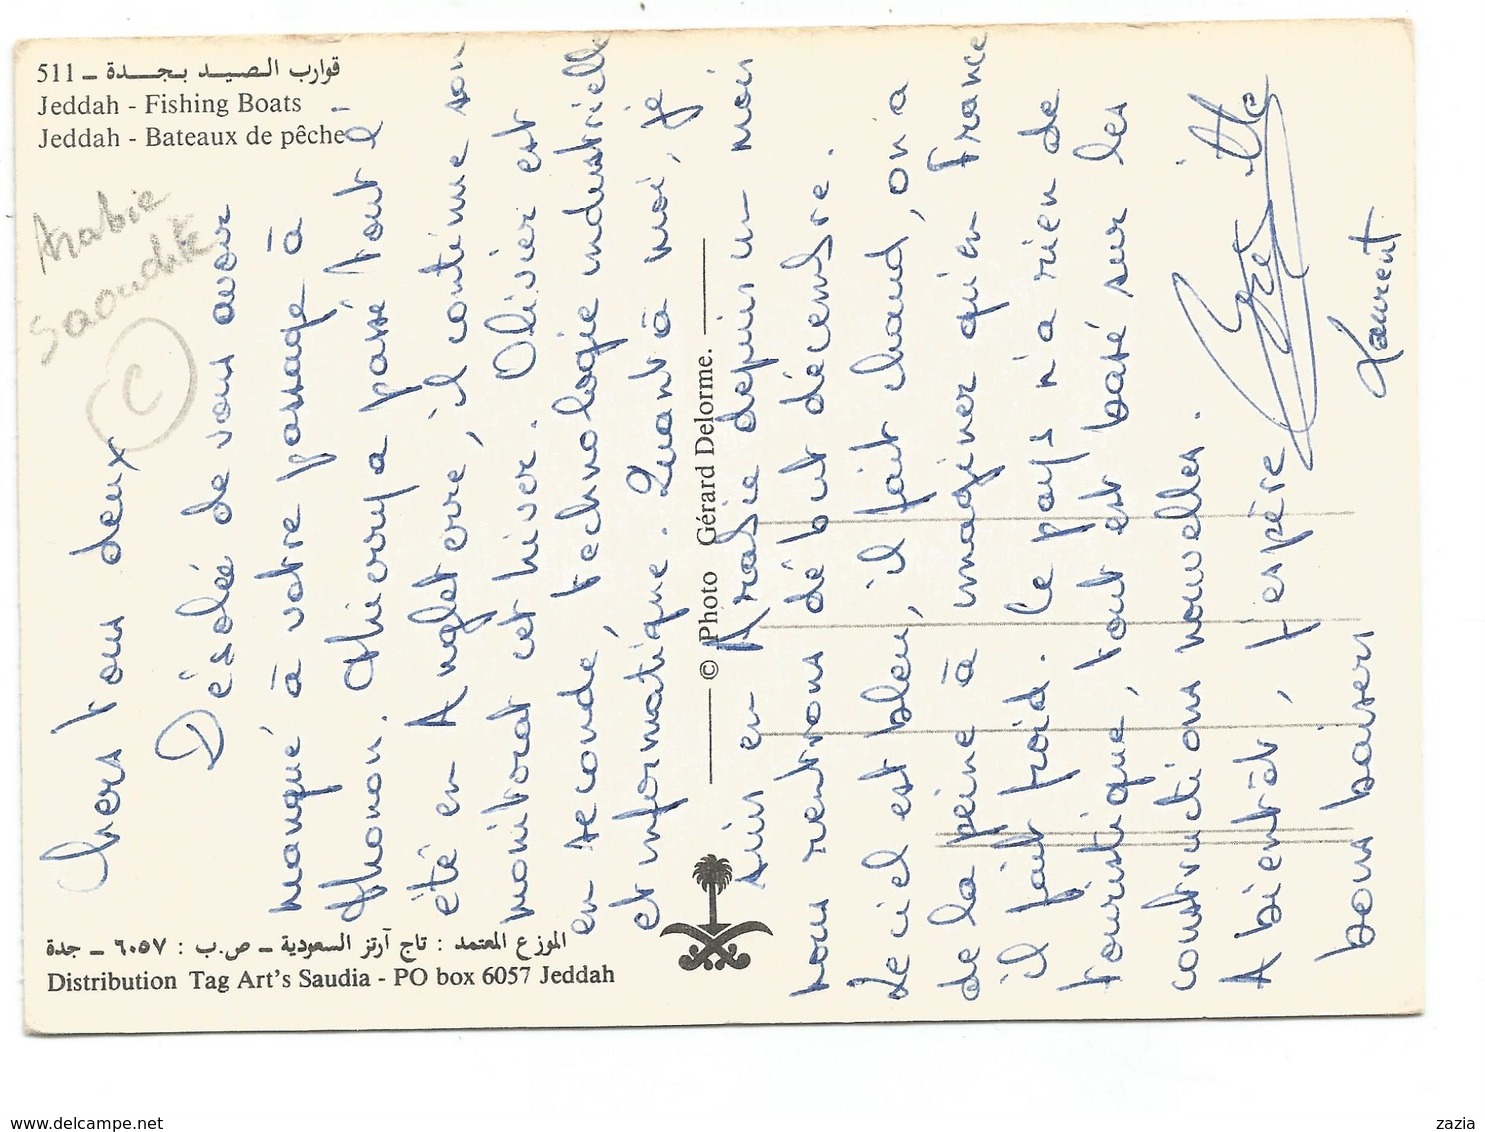 511 ـ قوارب الصيد بجدة
Jeddah - Fishing Boats
Jeddah - Bateaux de pêche
Arabie
Saoudite
C
Chers tous deux
Désolée de vous avoir
manqué à votre passage à
Thonon. Thierry a passé tout l'
été en Angleterre, il continue son
monitorat cet hiver. Olivier est
en seconde, technologie industrielle
et informatique. Quant à moi, je
suis en Arabie depuis un mois
nous rentrons début décembre.
Le ciel est bleu, il fait chaud, on a
de la peine à imaginer qu'en France
il fait froid. Le pays n'a rien de
touristique, tout est basé sur les
constructions nouvelles.
A bientôt, j'espère
bons baisers
Laurent
© Photo Gérard Delorme.
الموزع المعتمد : تاج آرتز السعودية ـ ص.ب : ٦٠٥٧ ـ جدة
Distribution Tag Art's Saudia - PO box 6057 Jeddah
www.delcampe.net
zazia